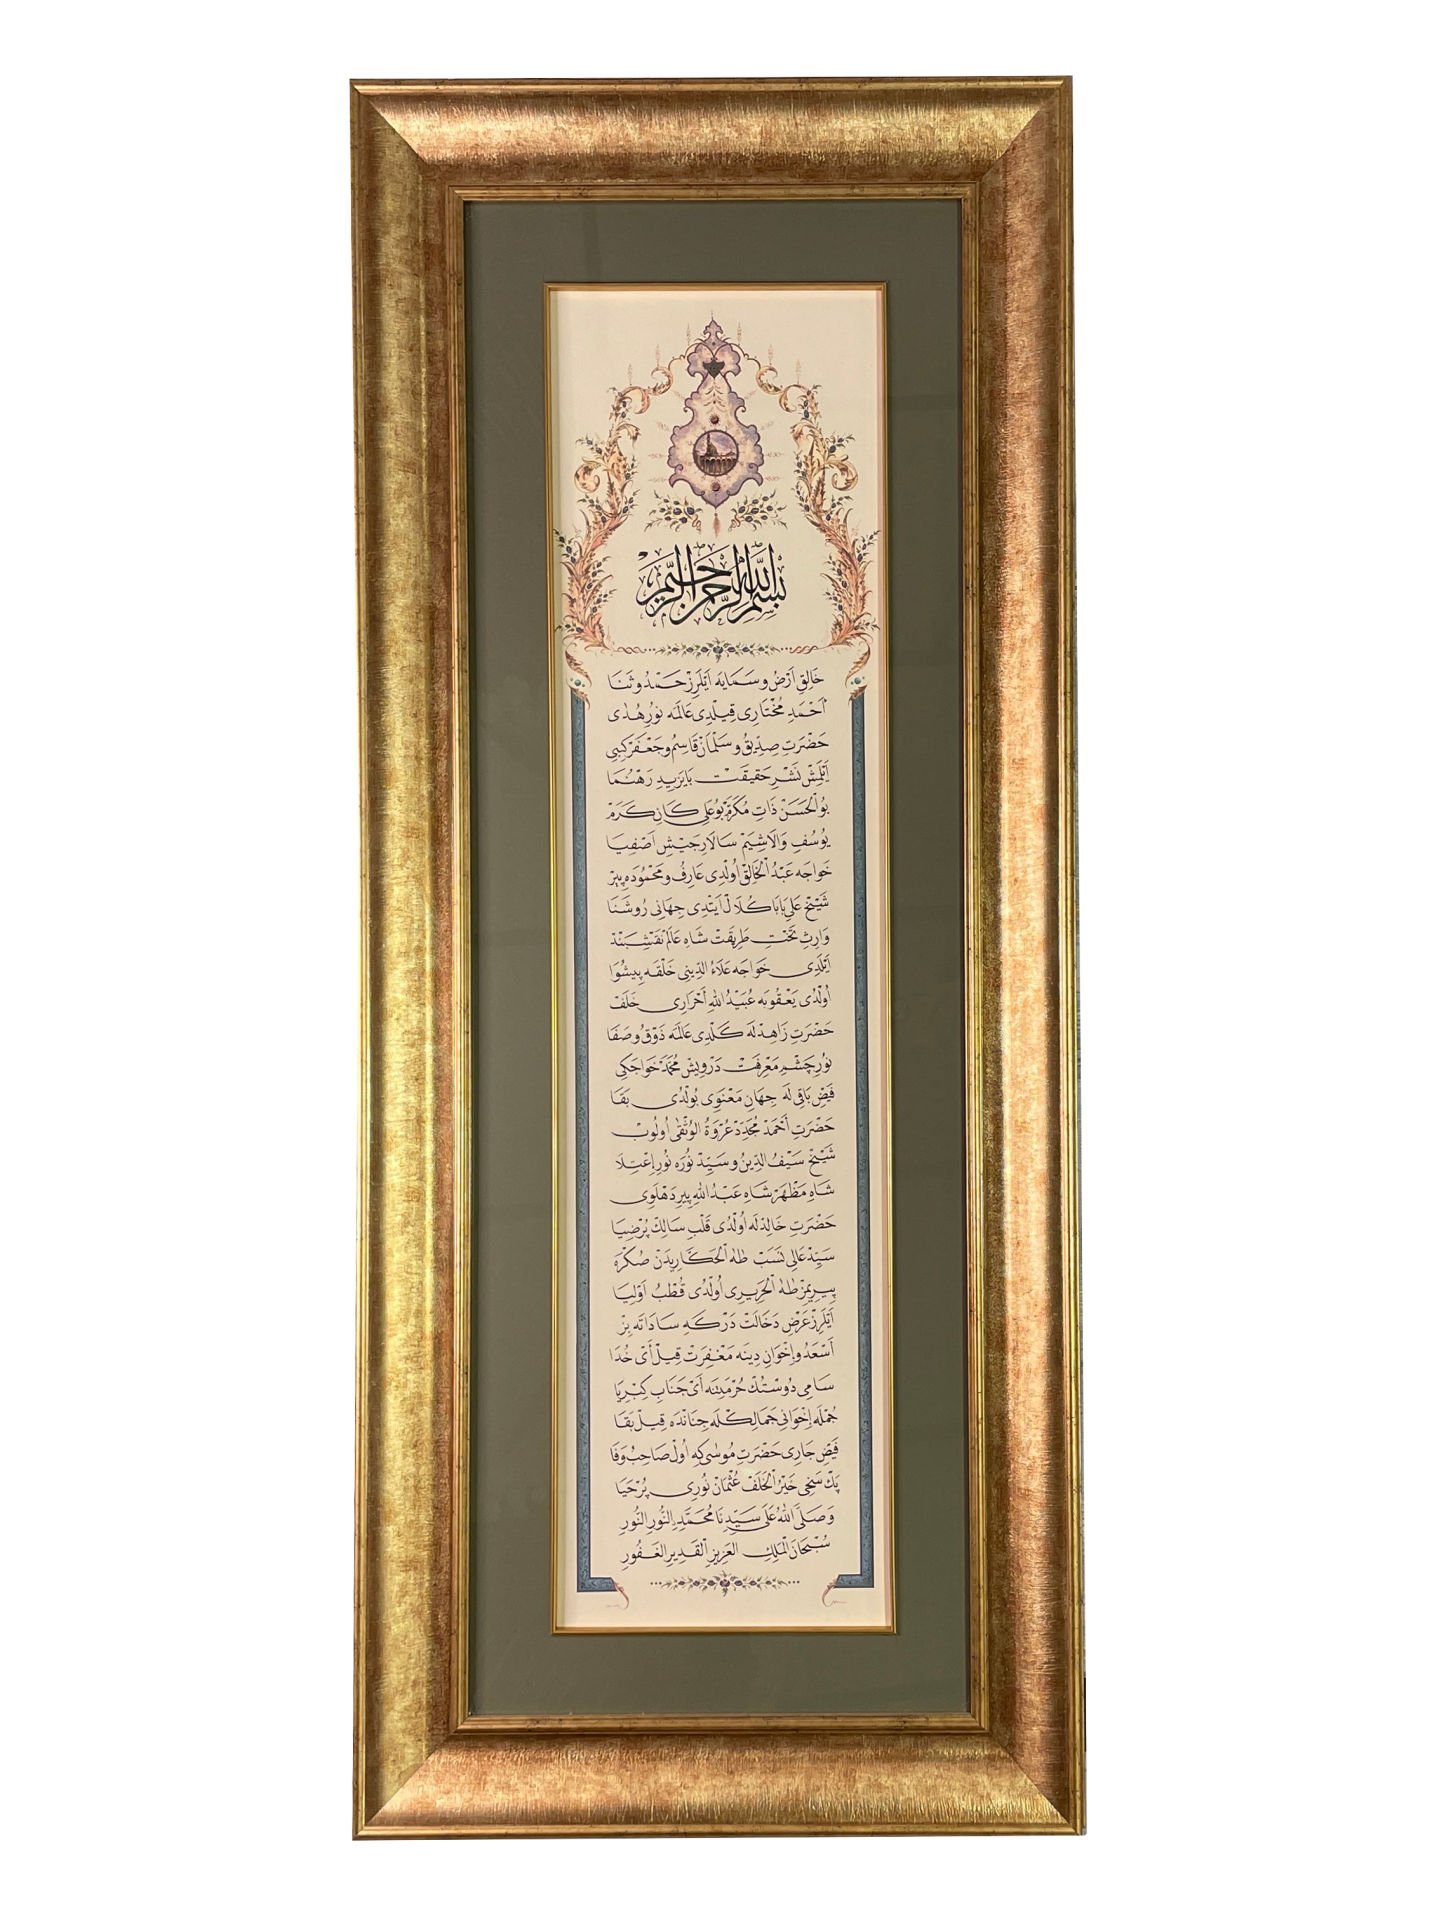 بسم الله الرحمن الرحيم
خَالِقِ اَرْضُ و سَمَايَه اَيْلَرِزْ حَمْدُ و ثَنَا
اَحْمَدِ مُخْتَارِى قِيلْدِى عَالَمَه نُورِ هُدٰى
حَضْرَتِ صِدِّيقُ و سَلْمَانْ قَاسِمُ و جَعْفَرْ كِبِى
اَيْلَمِشْ نَشْرِ حَقِيقَتْ بَايَزِيدِ رَهْنُمَا
بُو الْحَسَنْ ذَاتِ مُكَرَّمْ بُو عَلِى كَانِ كَرَمْ
يُوسُفِ وَالَا شِيَمْ سَالَارِ جَيْشِ اَصْفِيَا
خَواجَه عَبْدُ الْخَالِقْ اُولْدِى عَارِفُ و مَحْمُودَه پِيرْ
شَيْخْ عَلِى بَابَا كُلَالْ اَيْتْدِى جِهَانِى رُوشَنَا
وَارِثِ تَخْتِ طَرِيقَتْ شَاهِ عَالَمْ نَقْشِبَنْدْ
اَيْلَدِى خَواجَه عَلَاءُ الدِّينِى خَلْقَه پِيشْوَا
اُولْدُى يَعْقُوبَه عُبَيْدُ اللهِ اَحْرَارِى خَلَفْ
حَضْرَتِ زَاهِدْلَه كَلْدِى عَالَمَه ذَوْقُ و صَفَا
نُورِ چَشْمِ مَعْرِفَتْ دَرْوِيشْ مُحَمَّدْ خَواجَكِى
فَيْضِ بَاقِى لَه جِهَانِ مَعْنَوِى بُولْدُى بَقَا
حَضْرَتِ اَحْمَدْ مُجَدِّدْ عُرْوَةُ الْوُثْقٰى اُولُوبْ
شَيْخْ سَيْفُ الدِّينُ و سَيِّدْ نُورَه نُورِ اِعْتِلَا
شَاهِ مَظْهَرْ شَاهِ عَبْدُ اللهِ پِيرِ دَهْلَوِى
حَضْرَتِ خَالِدْلَه اُولْدُى قَلْبِ سَالِكْ پُرْ ضِيَا
سَيِّدِ عَالِى نَسَبْ طٰهٰ الْحَكَّارِيدَنْ صُكْرَه
پِيرِيمِزْ طٰهٰ الْحَرِيرِى اُولْدُى قُطْبُ اَوْلِيَا
اَيْلَرِزْ عَرْضِ دَخَالَتْ دَرْكَهِ سَادَاتَه بِزْ
اَسْعَدُ و اِخْوَانِ دِينَه مَغْفِرَتْ قِيلْ اَىْ خُدَا
سَامِى دُوسْتُكْ حُرْمَتِنَه اَىْ جَنَابِ كِبْرِيَا
جُمْلَه اِخْوَانِى جَمَالِكْلَه جِنَانْدَه قِيلْ بَقَا
فَيْضِ جَارِى حَضْرَتِ مُوسٰى كِه اُولْ صَاحِبْ وَفَا
پَكْ سَخِى خَيْرُ الْخَلَفْ عُثْمَانْ نُورِى پُرْ حَيَا
وَصَلَّى اللهُ عَلَى سَيِّدِنَا مُحَمَّدٍ النُّورِ النُّورِ
سُبْحَانَ الْمَلِكِ الْعَزِيزِ الْقَدِيرِ الْغَفُورِ